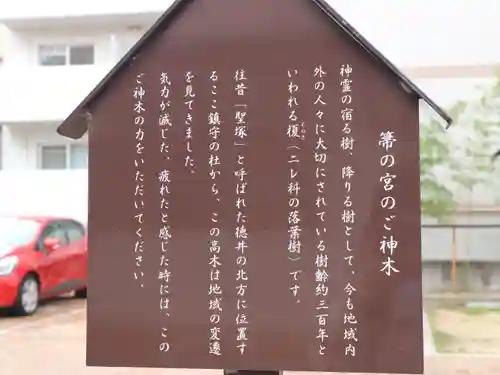 箒の宮のご神木
神霊の宿る樹、降りる樹として、今も地域内
外の人々に大切にされている樹齢約三百年と
いわれる榎（ニレ科の落葉樹）です。
えのき
往昔「聖塚」と呼ばれた徳井の北方に位置す
るここ鎮守の杜から、この高木は地域の変遷
を見てきました。
気力が減じた、疲れたと感じた時には、この
ご神木の力をいただいてください。